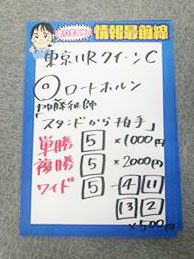 情報最前線
東京11R クイーンC
◎ロードホルン
「スタンドから拍手」
単勝 5 ×1000円
複勝 5 ×2000円
ワイド 5 - 4 11
13 2
×500円